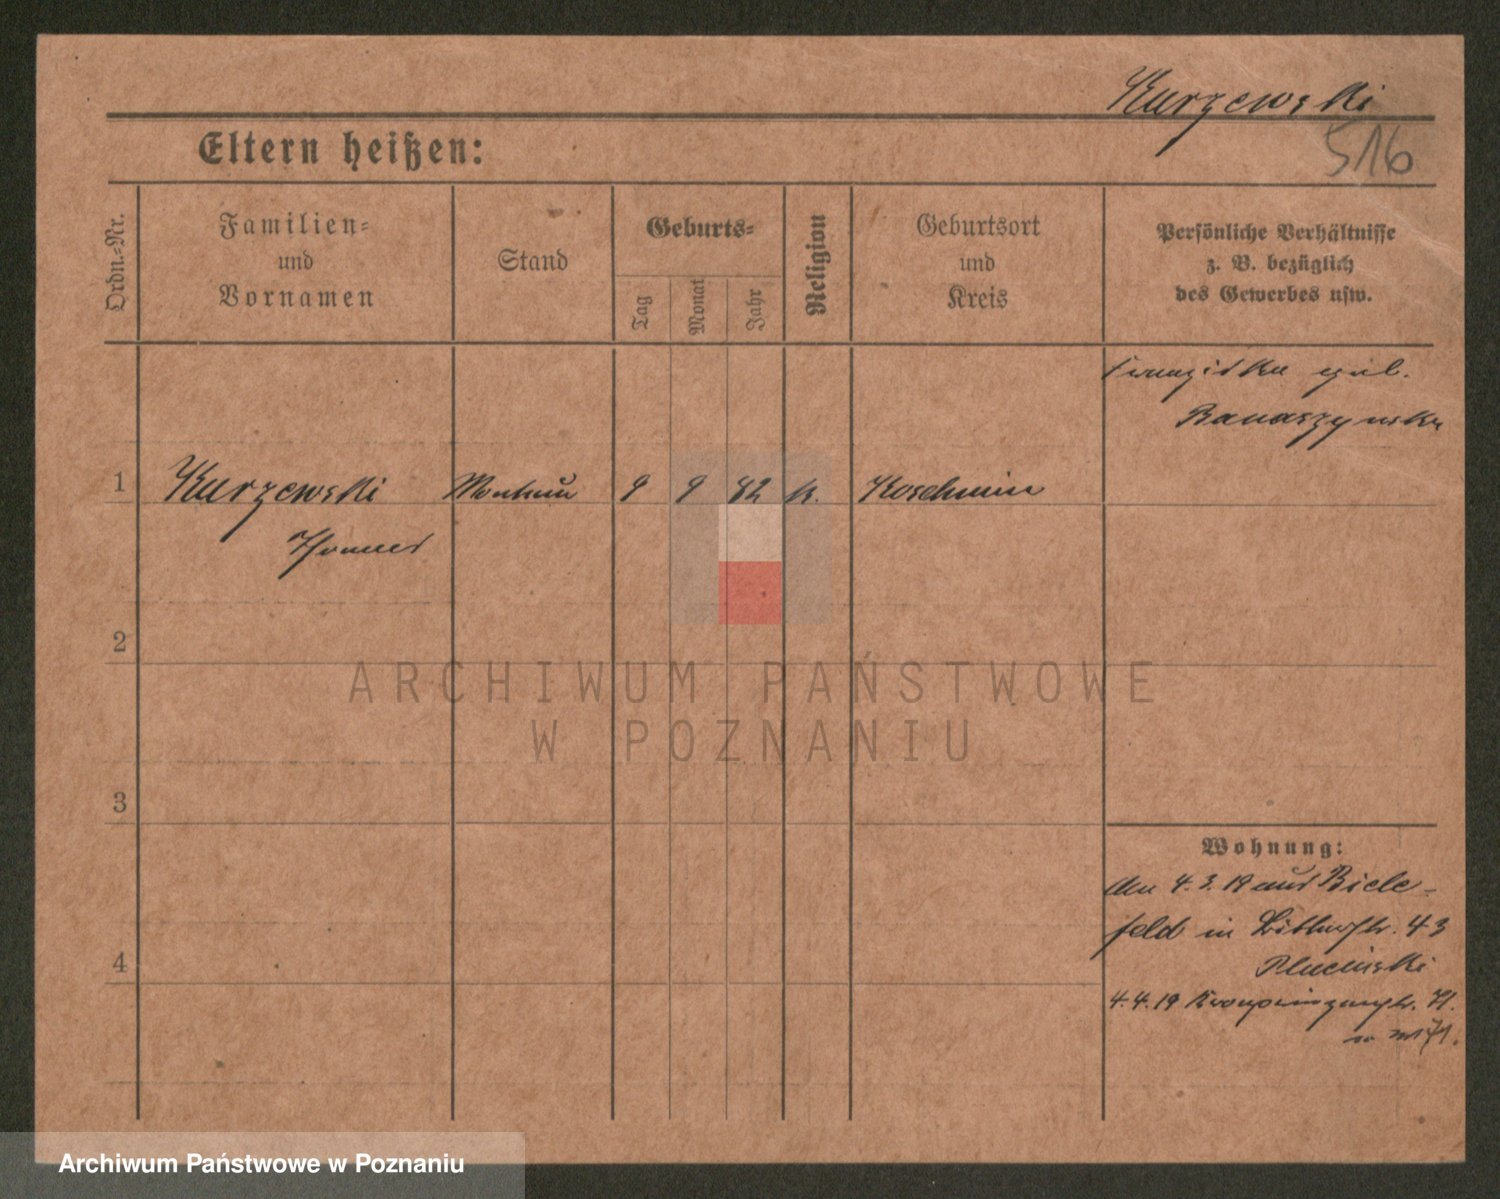 Kurzewski
516
Eltern heißen:
Ordn.-Nr.
Familien-
und
Vornamen
Stand
Geburts-
Tag
Monat
Jahr
Religion
Geburtsort
und
Kreis
Persönliche Verhältnisse
z. B. bezüglich
des Gewerbes usw.
Franziska geb.
Banaszynska
1 Kurzewski Monteur 9 9 82 k. Koschmin
Thomas
2
3
Wohnung:
Am 4.3.19 aus Biele-
feld in 43
4
Plucinski
4.4.19 Kronprinzenstr. 71.
71.
ARCHIWUM PAŃSTWOWE
W POZNANIU
Archiwum Państwowe w Poznaniu